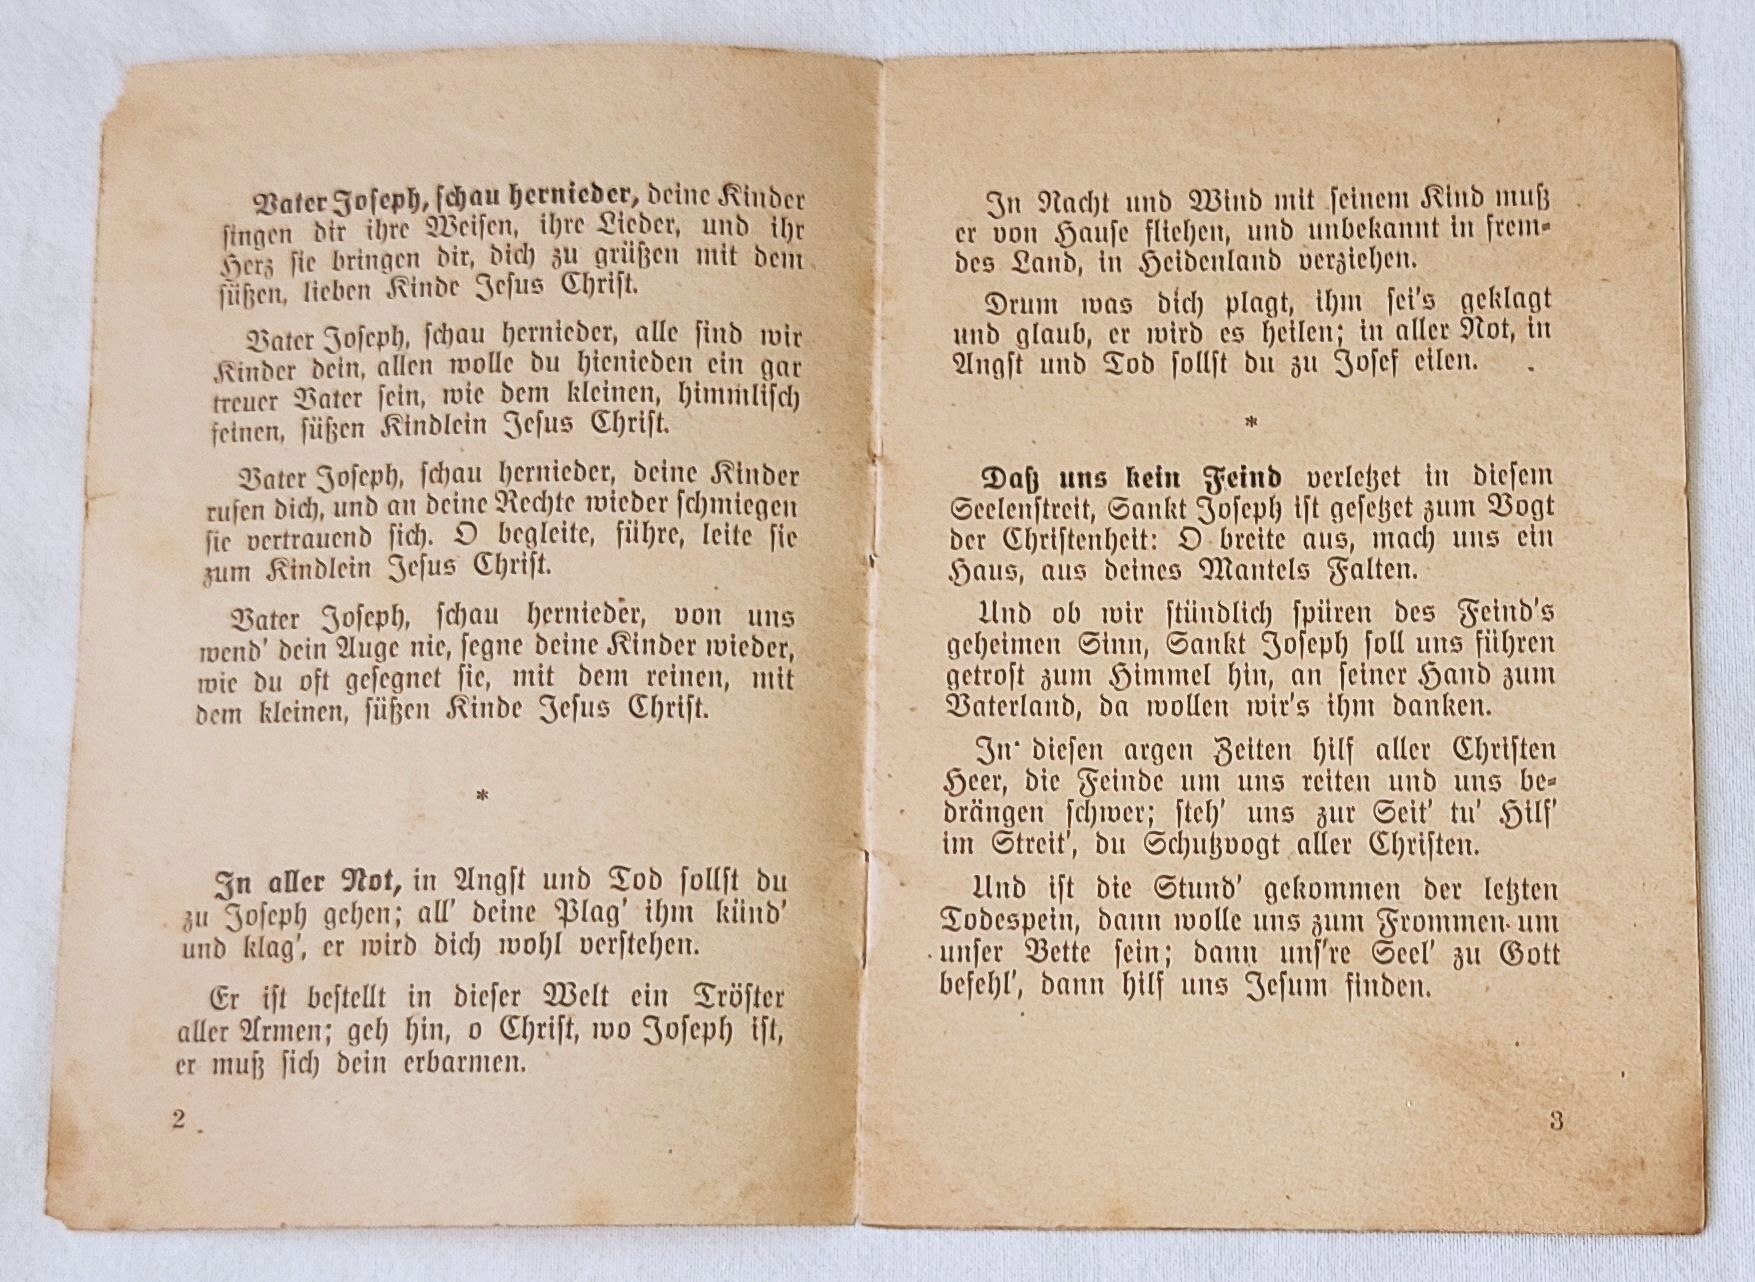 Vater Joseph, schau hernieder, deine Kinder
singen dir ihre Weisen, ihre Lieder, und ihr
Herz sie bringen dir, dich zu grüßen mit dem
süßen, lieben Kinde Jesus Christ.
Vater Joseph, schau hernieder, alle sind wir
Kinder dein, allen wolle du hienieden ein gar
treuer Vater sein, wie dem kleinen, himmlisch
feinen, süßen Kindlein Jesus Christ.
Vater Joseph, schau hernieder, deine Kinder
rufen dich, und an deine Rechte wieder schmiegen
sie vertrauend sich. O begleite, führe, leite sie
zum Kindlein Jesus Christ.
Vater Joseph, schau hernieder, von uns
wend' dein Auge nie, segne deine Kinder wieder,
wie du oft gesegnet sie, mit dem reinen, mit
dem kleinen, süßen Kinde Jesus Christ.
*
In aller Not, in Angst und Tod sollst du
zu Joseph gehen; all' deine Plag' ihm künd'
und klag', er wird dich wohl verstehen.
Er ist bestellt in dieser Welt ein Tröster
aller Armen; geh hin, o Christ, wo Joseph ist,
er muß sich dein erbarmen.
2
In Nacht und Wind mit seinem Kind muß
er von Hause fliehen, und unbekannt in frem-
des Land, in Heidenland verziehen.
Drum was dich plagt, ihm sei's geklagt
und glaub, er wird es heilen; in aller Not, in
Angst und Tod sollst du zu Josef eilen.
*
Daß uns kein Feind verletzet in diesem
Seelenstreit, Sankt Joseph ist gesetzet zum Vogt
der Christenheit: O breite aus, mach uns ein
Haus, aus deines Mantels Falten.
Und ob wir stündlich spüren des Feind's
geheimen Sinn, Sankt Joseph soll uns führen
getrost zum Himmel hin, an seiner Hand zum
Vaterland, da wollen wir's ihm danken.
In diesen argen Zeiten hilf aller Christen
Heer, die Feinde um uns reiten und uns be-
drängen schwer; steh' uns zur Seit' tu' Hilf'
im Streit', du Schutzvogt aller Christen.
Und ist die Stund' gekommen der letzten
Todespein, dann wolle uns zum Frommen um
unser Bette sein; dann uns're Seel' zu Gott
befehl', dann hilf uns Jesum finden.
3